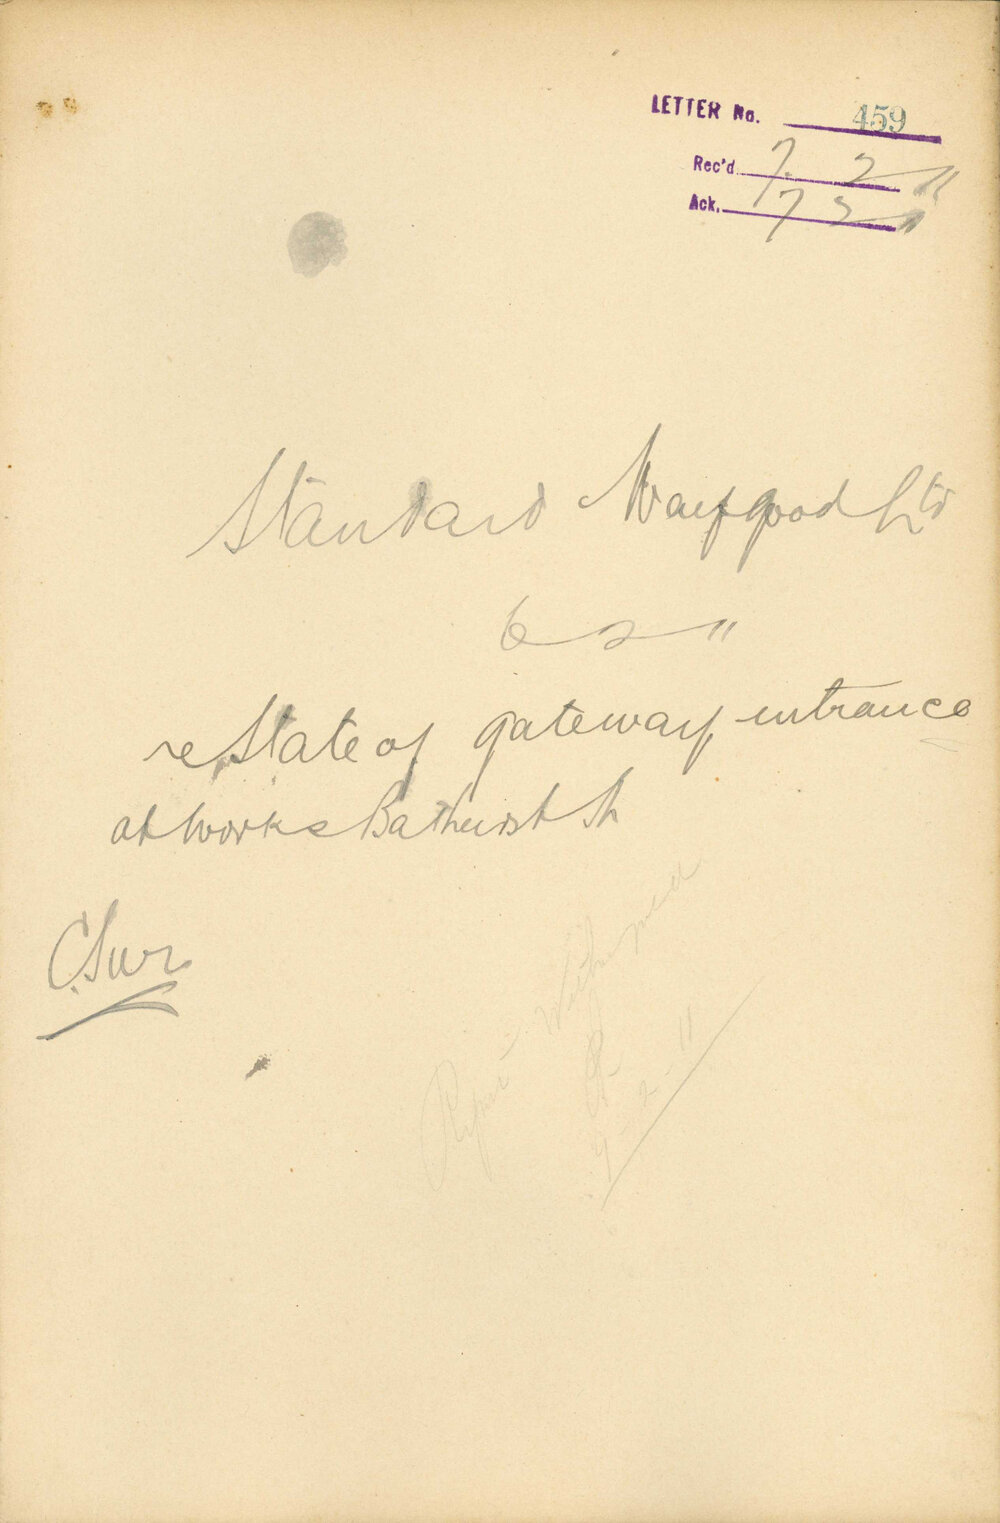 LETTER No. 459
Rec'd 7. 2 11
Ack. 7 2 11
Standard Waygood Ltd
6 2 11
re State of gateway entrance
at works Bathurst St
C. Svr
Report
7-2-11